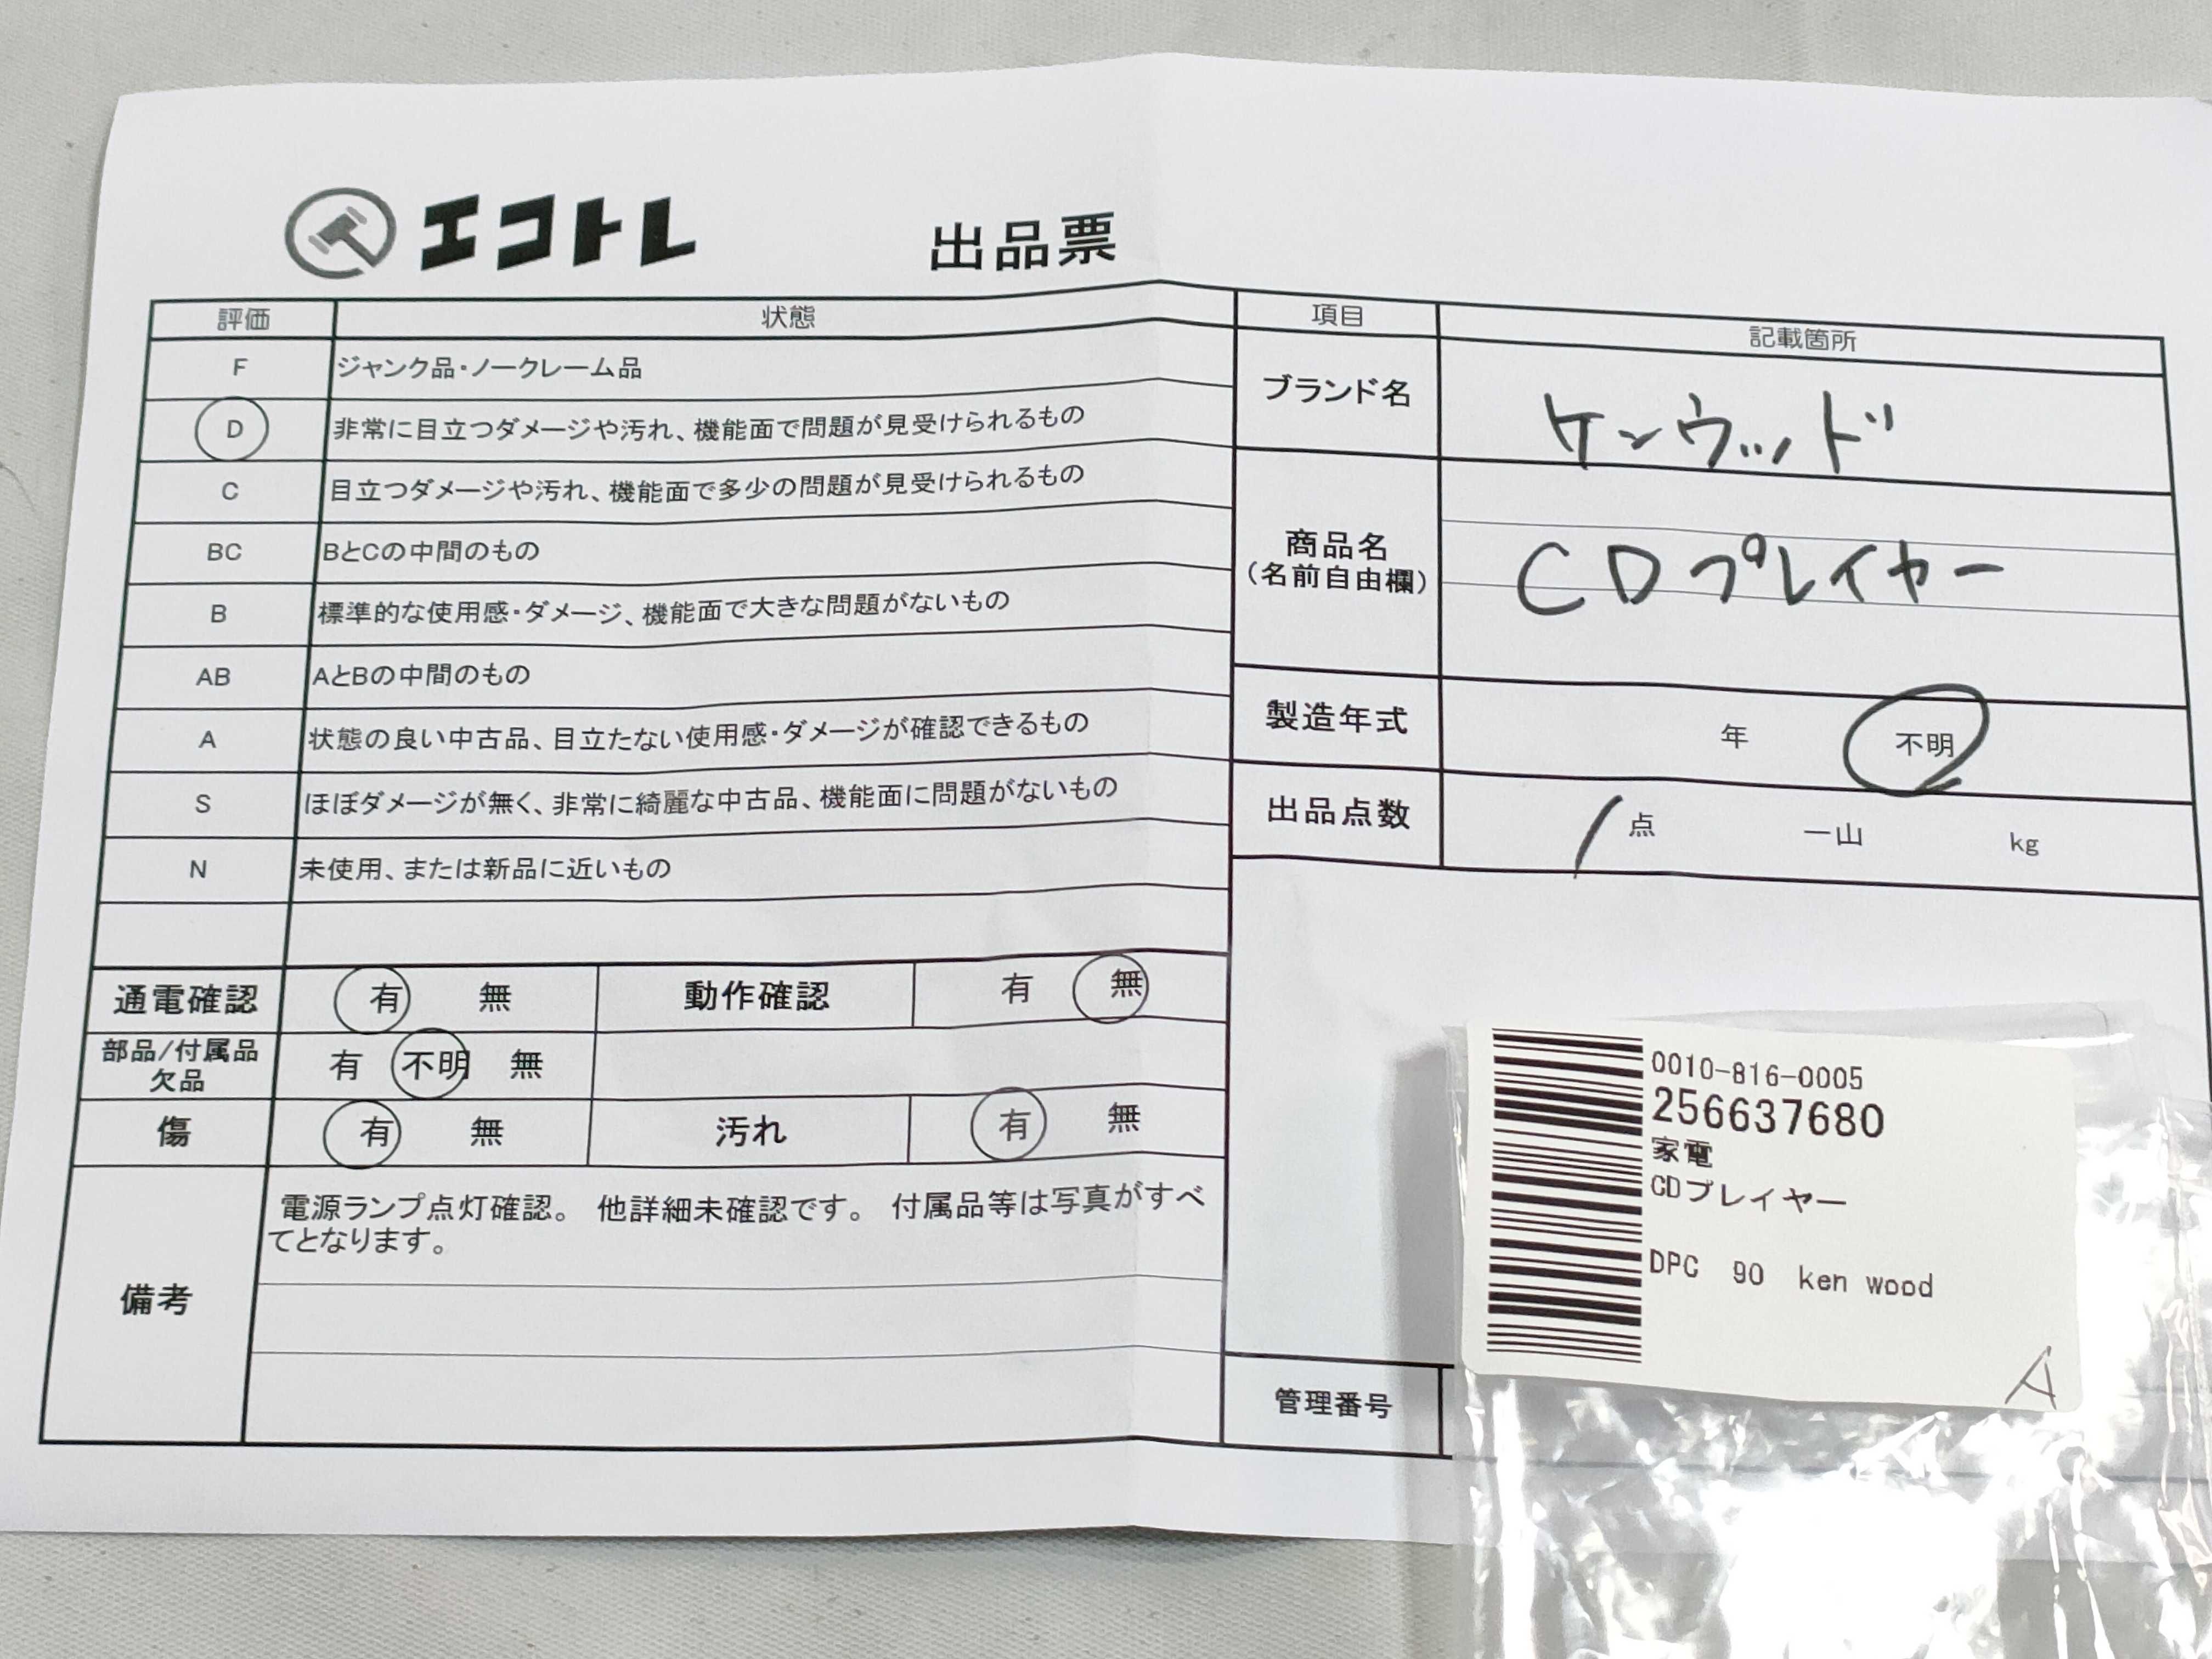 エコトレ 出品票
評価 状態
F ジャンク品・ノークレーム品
D 非常に目立つダメージや汚れ、機能面で問題が見受けられるもの
C 目立つダメージや汚れ、機能面で多少の問題が見受けられるもの
BC BとCの中間のもの
B 標準的な使用感・ダメージ、機能面で大きな問題がないもの
AB AとBの中間のもの
A 状態の良い中古品、目立たない使用感・ダメージが確認できるもの
S ほぼダメージが無く、非常に綺麗な中古品、機能面に問題がないもの
N 未使用、または新品に近いもの
通電確認 有 無 動作確認 有 無
部品/付属品
欠品 有 不明 無
傷 有 無 汚れ 有 無
備考
電源ランプ点灯確認。 他詳細未確認です。 付属品等は写真がすべ
てとなります。
項目 記載箇所
ブランド名 ケンウッド
商品名
(名前自由欄)
CDプレイヤー
製造年式 年 不明
出品点数 1 点 一山 kg
管理番号
0010-816-0005
256637680
家電
CDプレイヤー
DPC 90 ken wood
A